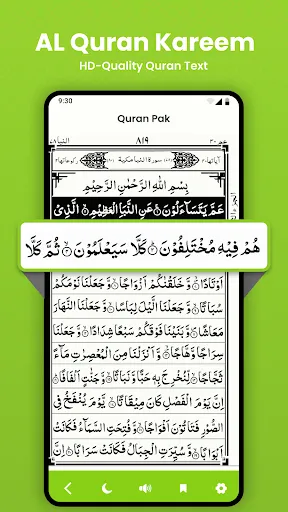 AL Quran Kareem
HD-Quality Quran Text
9:30
Quran Pak
عم ٣٠ ٨١٩ النبا ٧٨
سورة النبا مكية
بِسْمِ اللّٰهِ الرَّحْمٰنِ الرَّحِيْمِ
عَمَّ يَتَسَآءَلُوْنَ ۝ عَنِ النَّبَاِ الْعَظِيْمِ ۝ الَّذِيْ
هُمْ فِيْهِ مُخْتَلِفُوْنَ ۝ كَلَّا سَيَعْلَمُوْنَ ۝ ثُمَّ كَلَّا
اَوْتَادًا ۝ وَّخَلَقْنٰكُمْ اَزْوَاجًا ۝ وَّجَعَلْنَا نَوْمَكُمْ
سُبَاتًا ۝ وَّجَعَلْنَا الَّيْلَ لِبَاسًا ۝ وَّجَعَلْنَا النَّهَارَ
مَعَاشًا ۝ وَّبَنَيْنَا فَوْقَكُمْ سَبْعًا شِدَادًا ۝ وَّجَعَلْنَا
سِرَاجًا وَّهَّاجًا ۝ وَّاَنْزَلْنَا مِنَ الْمُعْصِرٰتِ مَآءً
ثَجَّاجًا ۝ لِّنُخْرِجَ بِهٖ حَبًّا وَّنَبَاتًا ۝ وَّجَنّٰتٍ اَلْفَافًا ۝
اِنَّ يَوْمَ الْفَصْلِ كَانَ مِيْقَاتًا ۝ يَّوْمَ يُنْفَخُ فِي
الصُّوْرِ فَتَاْتُوْنَ اَفْوَاجًا ۝ وَّفُتِحَتِ السَّمَآءُ فَكَانَتْ
اَبْوَابًا ۝ وَّسُيِّرَتِ الْجِبَالُ فَكَانَتْ سَرَابًا ۝ اِنَّ